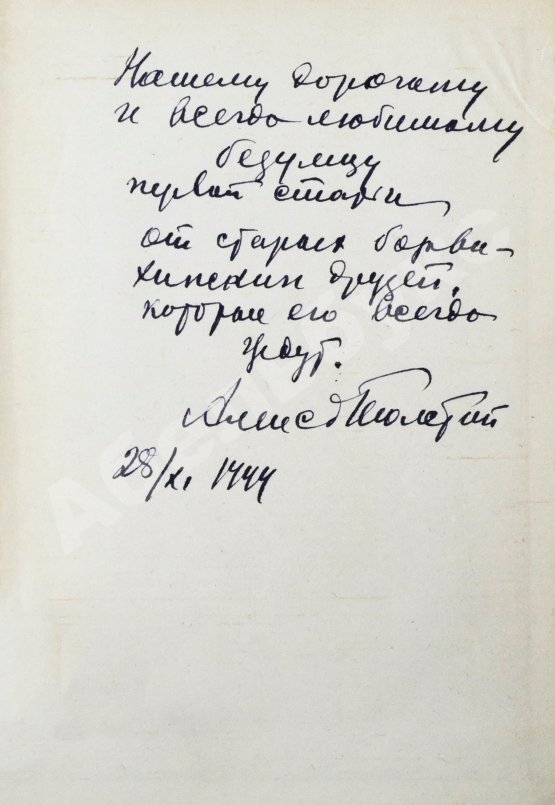 Нашему дорогому
и всегда любимому
безумцу
первой статьи
от старых барви-
хинских друзей,
которые его всегда
ждут.
Алексей Толстой
28/XI. 1944